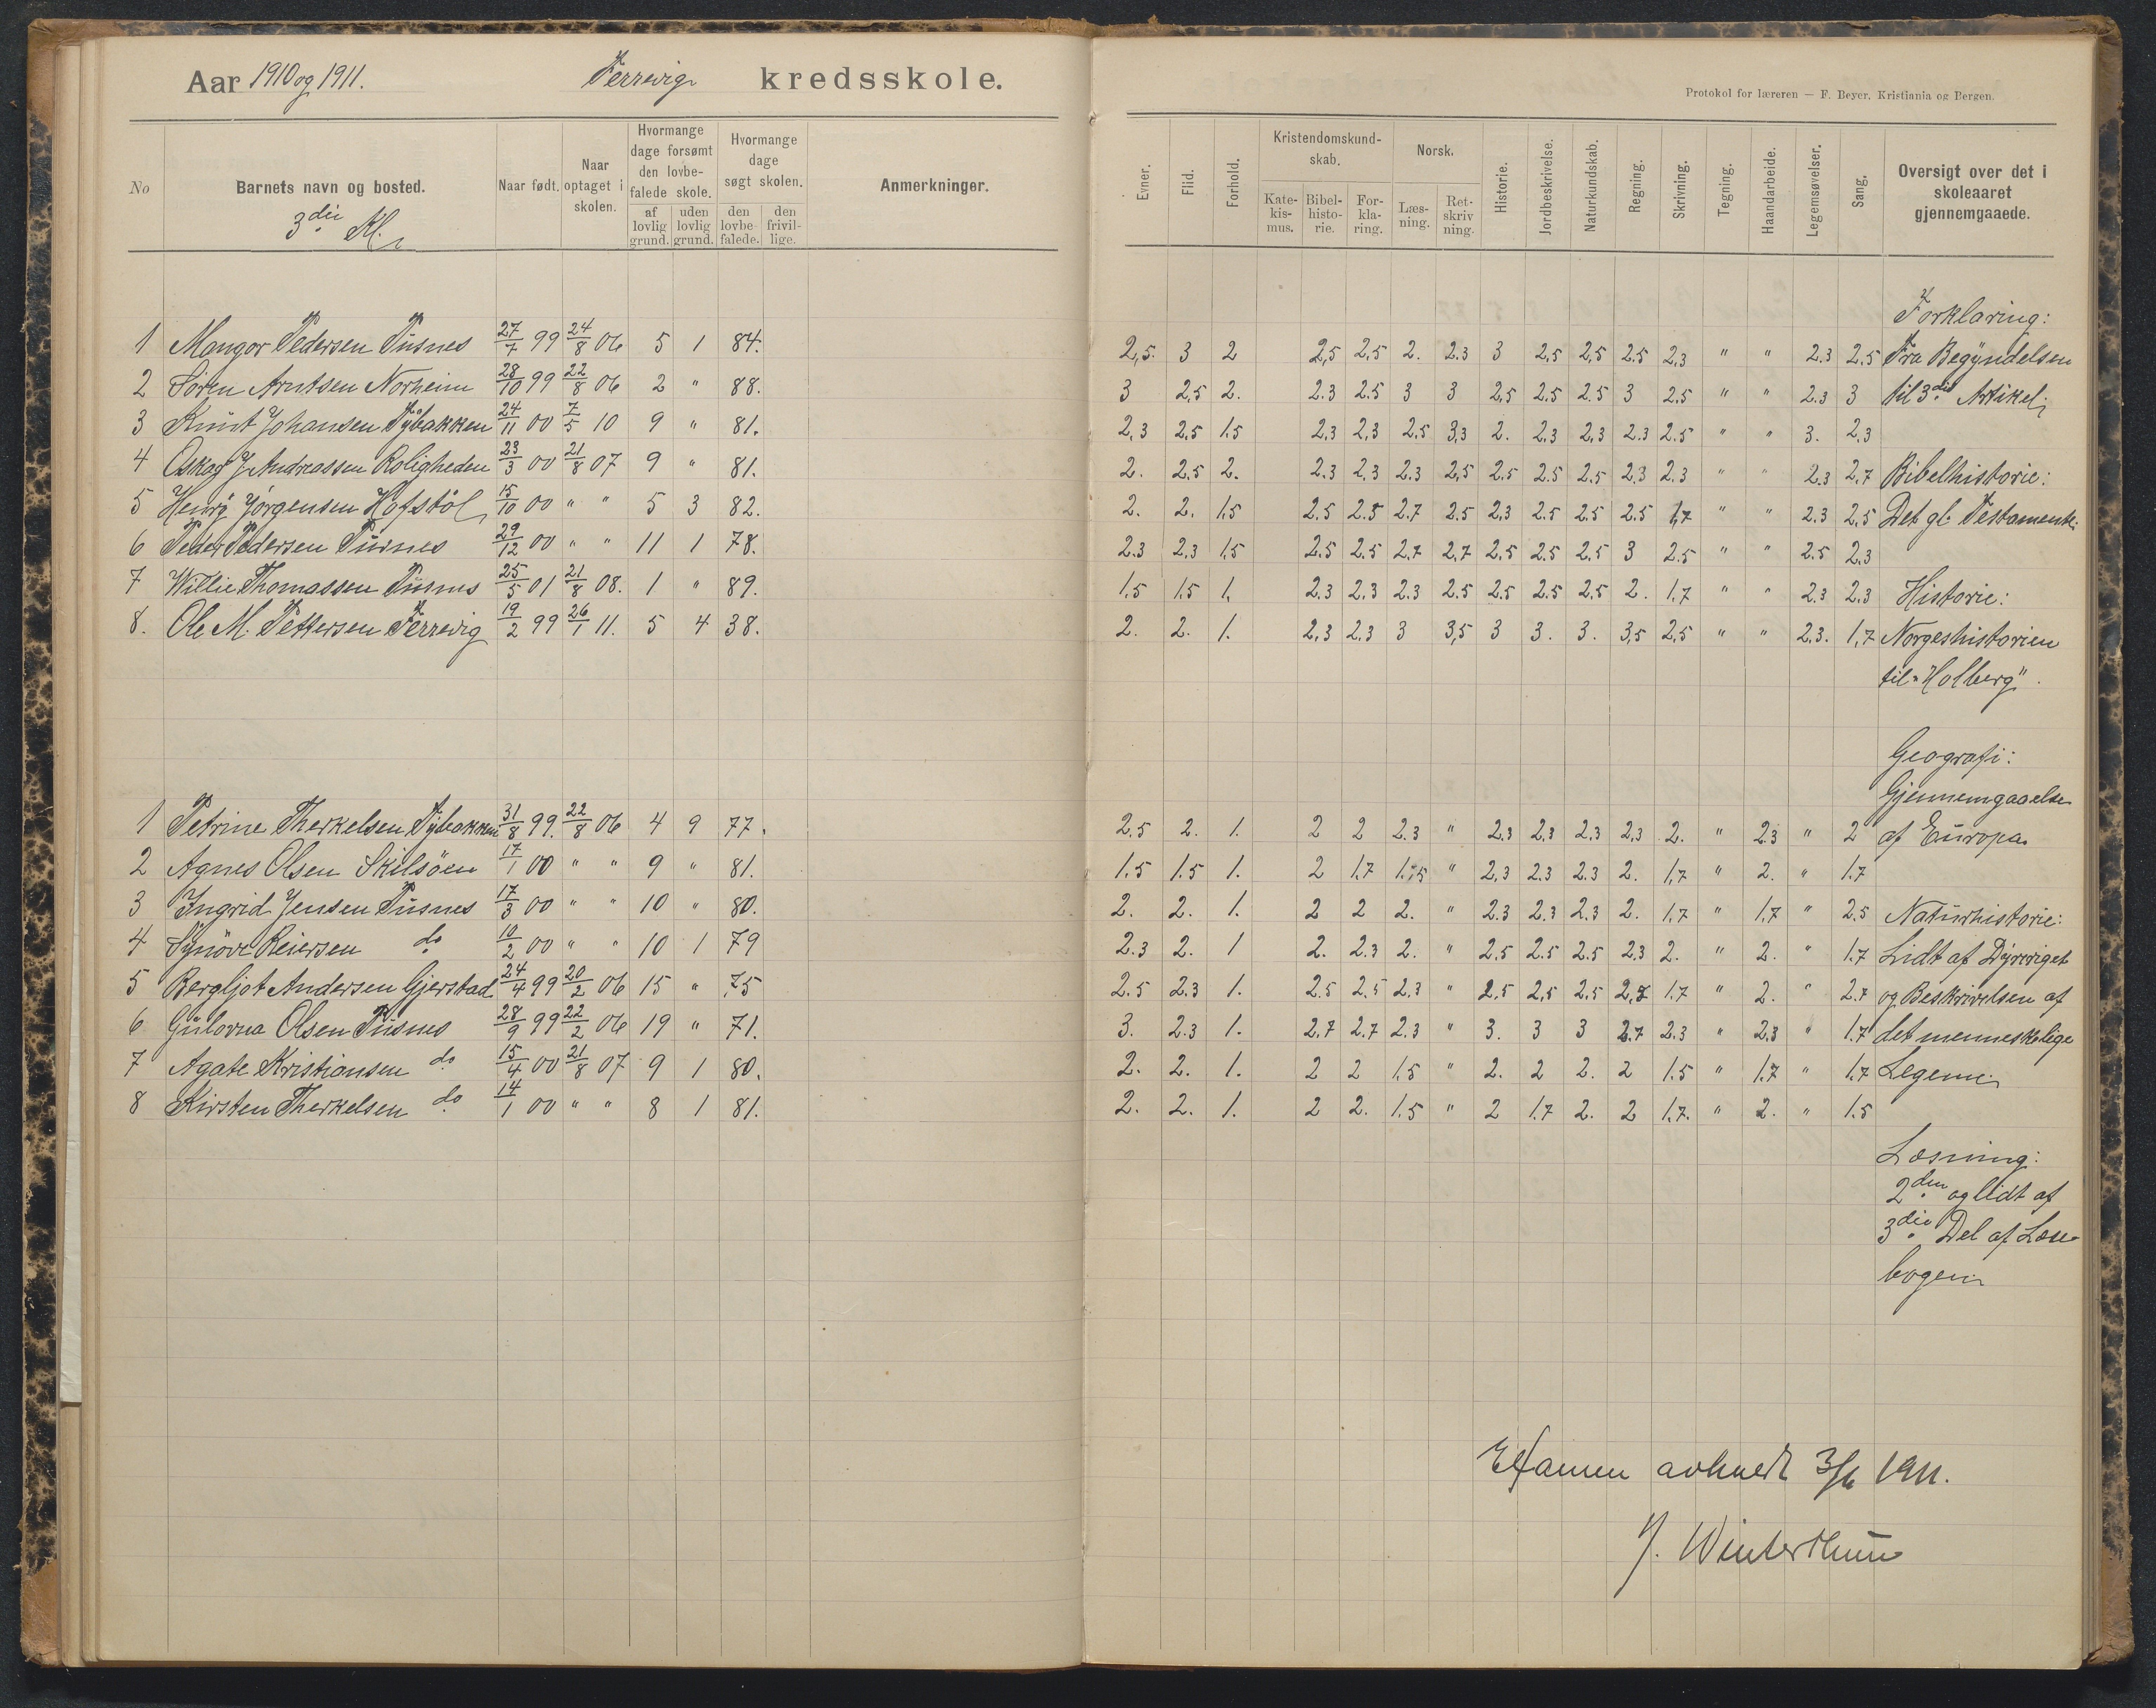 Aar 1910 og 1911. Færvig kredsskole.
No
Barnets navn og bosted.
3die Kl.
Naar født.
Naar optaget i skolen.
Hvormange dage forsømt den lovbefalede skole.
af lovlig grund.
uden lovlig grund.
Hvormange dage søgt skolen.
den lovbefalede.
den frivillige.
Anmerkninger.
1 Mangor Pedersen Pusnes 27/7 99 24/8 06 5 1 84.
2 Søren Arntsen Norheim 28/10 99 22/8 06 2 " 88.
3 Knut Johansen Tybakken 24/11 00 7/5 10 9 " 81.
4 Oskar J. Andreassen Roligheden 23/3 00 21/8 07 9 " 81.
5 Henry Jørgensen Hofstøl 15/10 00 " " 5 3 82.
6 Peder Pedersen Pusnes 29/12 00 " " 11 1 78.
7 Willie Thomassen Pusnes 25/5 01 21/8 08. 1 " 89.
8. Ole M. Pettersen Færvig 19/2 99 26/1 11. 5 4 38.
1 Petrine Therkelsen Tybakken 31/8 99. 22/8 06 4 9 77.
2 Agnes Olsen Skilsøen 17/1 00 " " 9 " 81.
3 Ingrid Jensen Pusnes 17/3 00 " " 10 " 80.
4 Synøve Reiersen do 10/2 00 " " 10 1 79
5 Bergljot Andersen Gjerstad 24/4 99 20/2 06 15 " 75
6 Gulovna Olsen Pusnes 28/9 99 22/2 06 19 " 71.
7 Agate Kristiansen do 15/4 00 21/8 07 9 1 80.
8 Kirsten Therkelsen do 14/1 00 " " 8 1 81.
Protokol for læreren — F. Beyer, Kristiania og Bergen.
Evner.
Flid.
Forhold.
Kristendomskundskab.
Katekismus.
Bibelhistorie.
Forklaring.
Norsk.
Læsning.
Retskrivning.
Historie.
Jordbeskrivelse.
Naturkundskab.
Regning.
Skrivning.
Tegning.
Haandarbeide.
Legemsøvelser.
Sang.
Oversigt over det i skoleaaret gjennemgaaede.
Forklaring:
2,5. 3 2 2,5 2,5 2. 2.3 3 2,5 2,5 2.5 2,3 " " 2.3 2.5 Fra Begyndelsen
3 2,5 2. 2.3 2.5 3 3 2,5 2.5 2.5 3 2.5 " " 2.3 3 til 3die Artikel.
2,3 2,5 1.5 2,3 2,3 2,5 3,3 2. 2,3 2,3 2.3 2.5 " " 3. 2,3
2. 2.5 2. 2.3 2,3 2.3 2,5 2.5 2.5 2.5 2,3 2.3 " " 2.3 2,7 Bibelhistorie:
2. 2. 1.5 2.5 2.5 2.7 2.5 2,3 2.5 2.5 2.5 1,7 " " 2.3 2,5 Det gl. Testamente.
2.3 2,3 1,5 2.5 2.5 2,7 2,7 2,5 2.5 2,5 3 2.5 " " 2.5 2,3
1.5 1.5 1. 2.3 2,3 2.3 2.5 2.5 2.5 2,5 2. 1.7 " " 2.3 2,3 Historie:
2. 2. 1. 2,3 2,3 3 3,5 3 3. 3. 3,5 2,5 " " 2,3. 1,7 Norgeshistorien
til "Holberg".
Geografi:
Gjennemgaaelse
2.5 2. 1. 2 2 2.3 " 2,3 2,3 2,3 2,3 2. " 2.3 " 2 af Europa.
1.5 1.5 1. 2 1.7 1.5 " 2,3 2.3 2.3 2. 1,7 " 2. " 1.7
2. 2. 1. 2 2 2. " 2.3 2.3 2,3 2. 1.7 " 1.7 " 2.5 Naturhistorie:
2.3 2. 1 2. 2.3 2. " 2.5 2.5 2.5 2.3 2. " 2. " 1.7 Lidt af Dyreriget
2.5 2.3 1. 2.5 2.5 2.3 " 2,5 2,5 2,5 2,7 1.7 " 2. " 2.7 og Beskrivelsen af
3. 2.3 1. 2,7 2.7 2.3 " 3. 3 3 2.7 2.3 " 2.3 " 1.7 det menneskelige
2. 2. 1. 2 2 1.5 " 2. 2 2. 2 1.5 " 1.7 " 1.7 Legeme.
2. 2. 1. 2 2. 1.5 " 2 1.7 2. 2 1.7. " 2. " 1.5
Læsning:
2den og lidt af
3die Del af Læse
bogen.
Examen avholdt 3/6 1911.
J. Winterthun